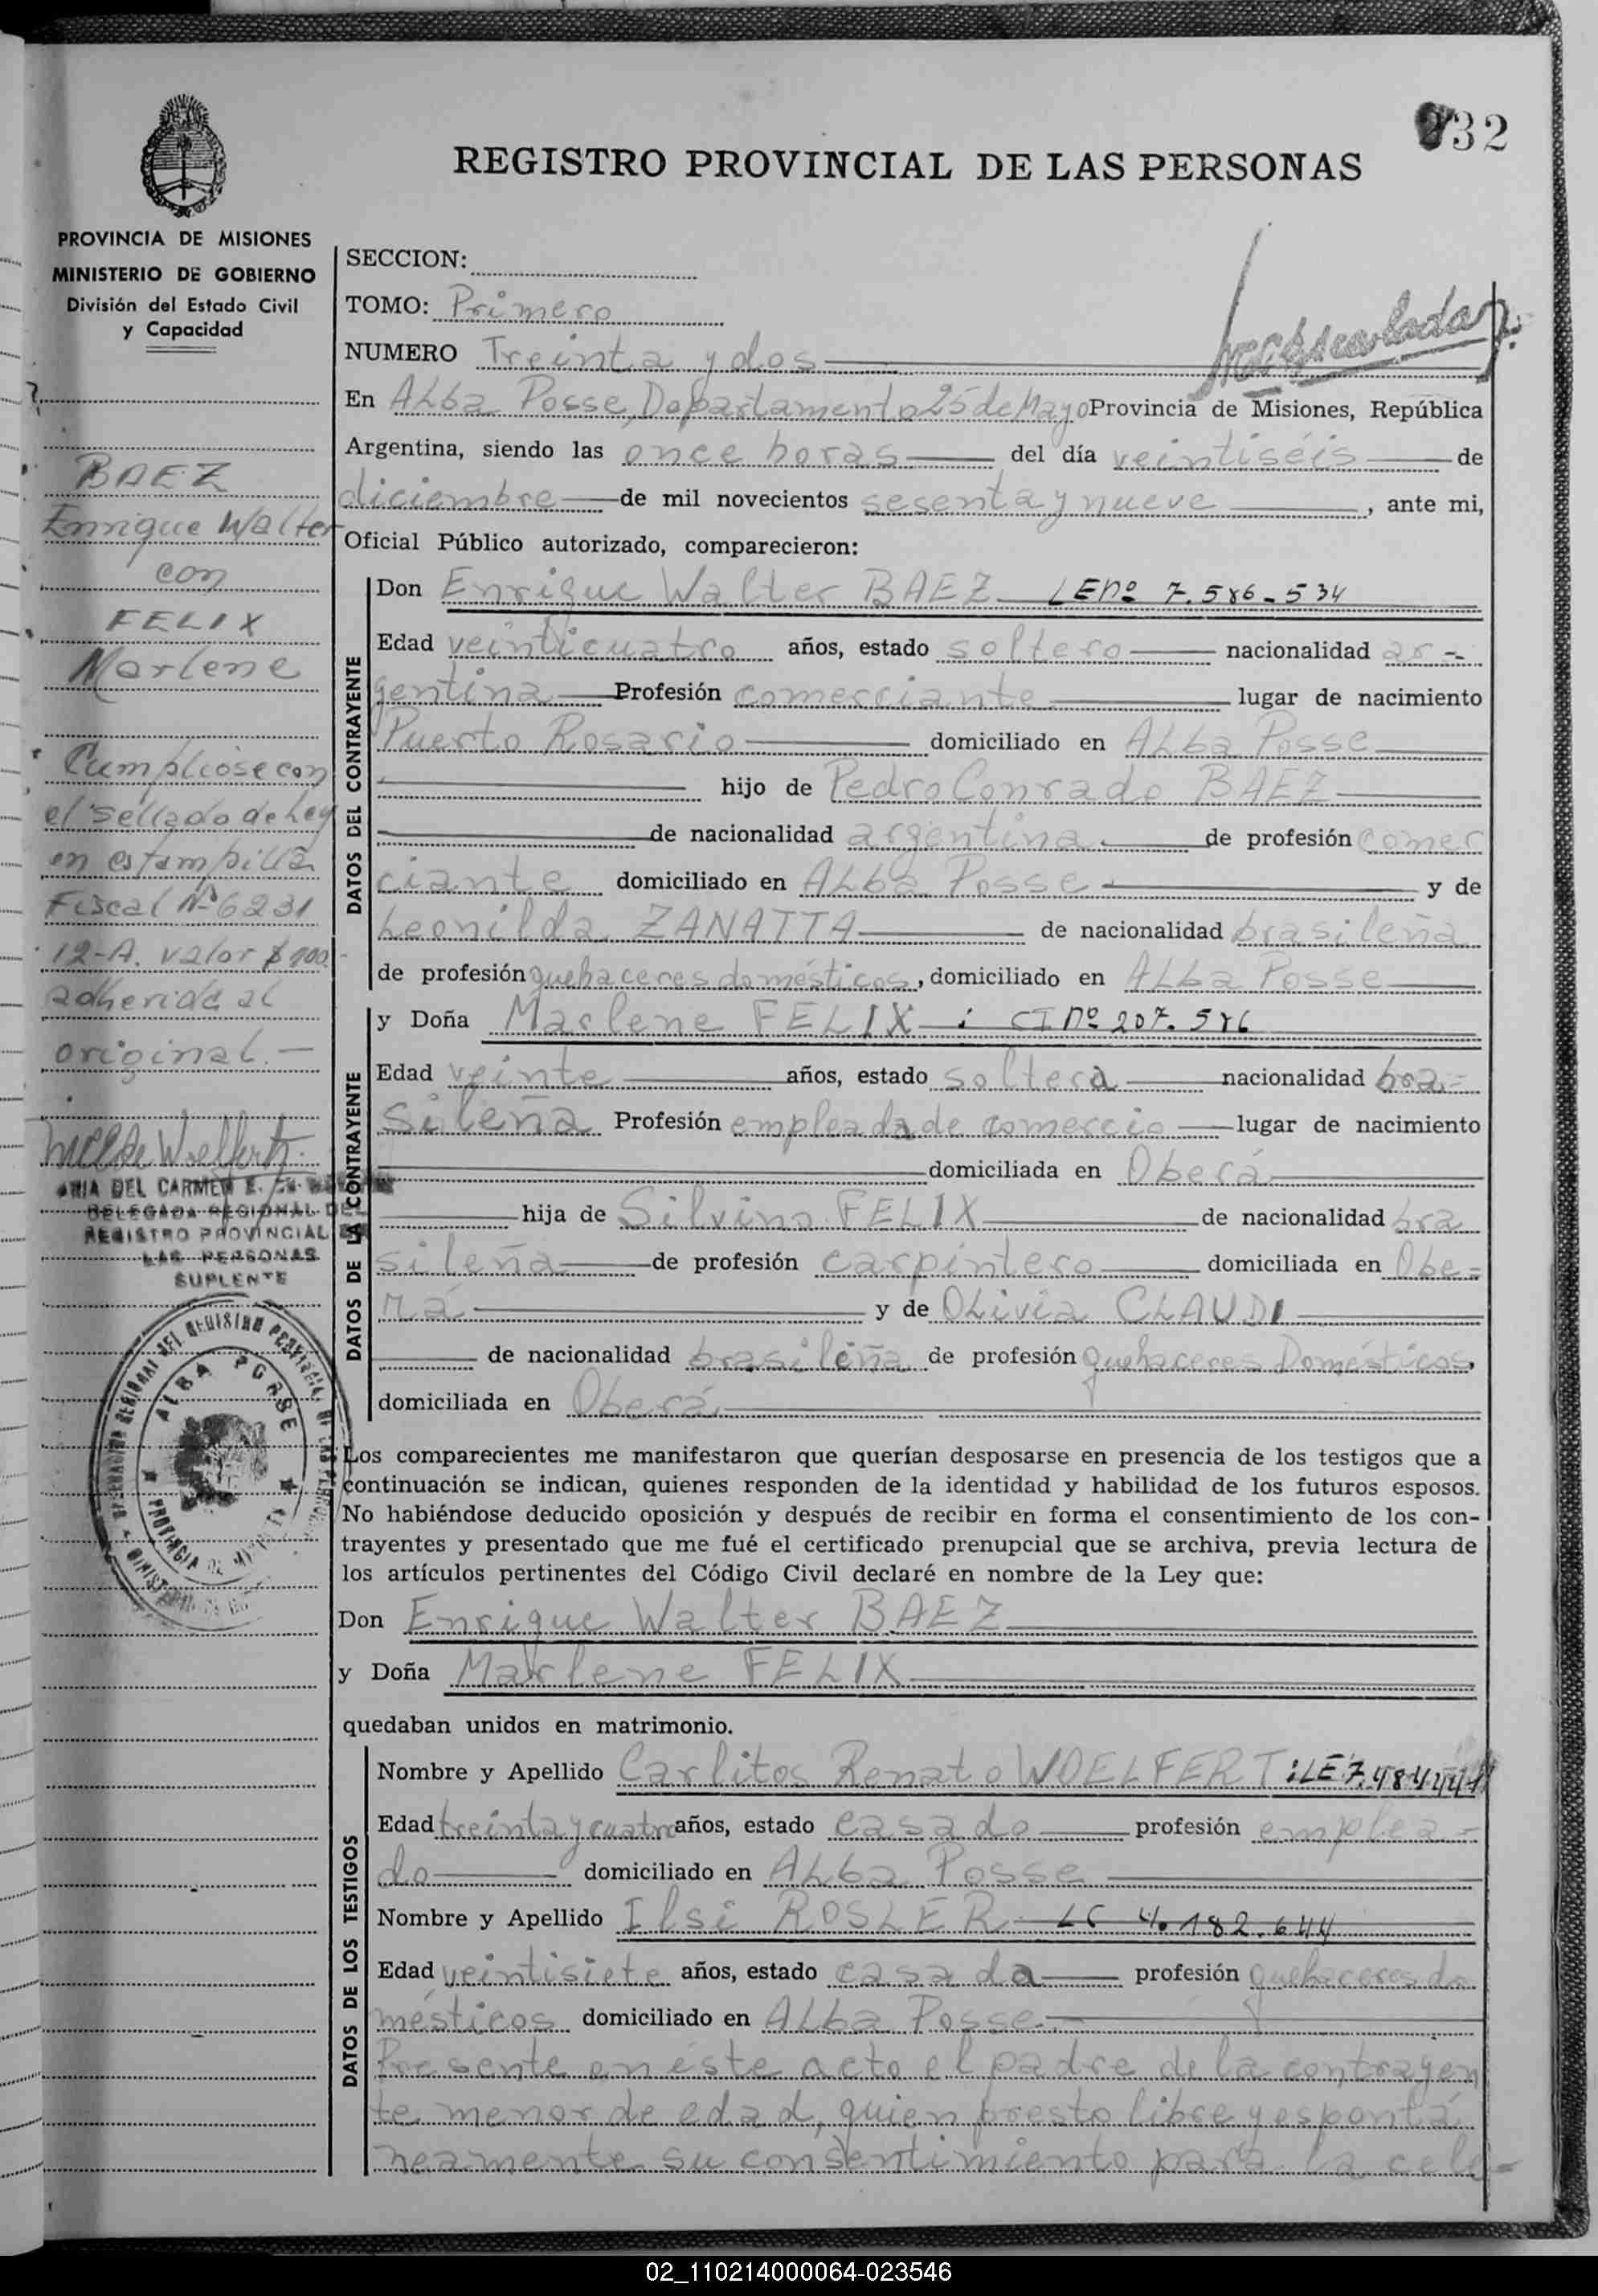 32
REGISTRO PROVINCIAL DE LAS PERSONAS
PROVINCIA DE MISIONES
MINISTERIO DE GOBIERNO
División del Estado Civil
y Capacidad
BAEZ
Enrique Walter
con
FELIX
Marlene
Cumplióse con
el sellado de Ley
en estampilla
Fiscal Nº 6231
12-A. valor $ 100.-
adherida al
original.-
DELEGADA REGIONAL DEL
REGISTRO PROVINCIAL DE
LAS PERSONAS
SUPLENTE
ALBA POSSE
SECCION:
TOMO: Primero
NUMERO Treinta y dos
En Alba Posse, Departamento 25 de Mayo Provincia de Misiones, República
Argentina, siendo las once horas del día veintiséis de
diciembre de mil novecientos sesenta y nueve, ante mi,
Oficial Público autorizado, comparecieron:
DATOS DEL CONTRAYENTE
Don Enrique Walter BAEZ LE nº 7.586-534
Edad veinticuatro años, estado soltero nacionalidad ar-
gentina Profesión comerciante lugar de nacimiento
Puerto Rosario domiciliado en Alba Posse
hijo de Pedro Conrado BAEZ
de nacionalidad argentina de profesión comer
ciante domiciliado en Alba Posse y de
Leonilda ZANATTA de nacionalidad brasileña
de profesión quehaceres domésticos, domiciliado en Alba Posse
DATOS DE LA CONTRAYENTE
y Doña Marlene FELIX ; CI nº 207.586
Edad veinte años, estado soltera nacionalidad bra-
sileña Profesión empleada de comercio lugar de nacimiento
domiciliada en Oberá
hija de Silvino FELIX de nacionalidad bra
sileña de profesión carpintero domiciliada en Obe-
rá y de Olivia CLAUDI
de nacionalidad brasileña de profesión quehaceres Domésticos,
domiciliada en Oberá
Los comparecientes me manifestaron que querían desposarse en presencia de los testigos que a
continuación se indican, quienes responden de la identidad y habilidad de los futuros esposos.
No habiéndose deducido oposición y después de recibir en forma el consentimiento de los con-
trayentes y presentado que me fué el certificado prenupcial que se archiva, previa lectura de
los artículos pertinentes del Código Civil declaré en nombre de la Ley que:
Don Enrique Walter BAEZ
y Doña Marlene FELIX
quedaban unidos en matrimonio.
DATOS DE LOS TESTIGOS
Nombre y Apellido Carlitos Renato WOELFERT; LE
Edad treinta y cuatro años, estado casado profesión emplea-
do domiciliado en Alba Posse
Nombre y Apellido Ilsi ROSLER LC 4.182.644
Edad veintisiete años, estado casada profesión quehaceres do
mésticos domiciliado en Alba Posse.
Presente en éste acto el padre de la contrayen
te menor de edad, quien presto libre y espontá
neamente su consentimiento para la cele-
02_110214000064-023546